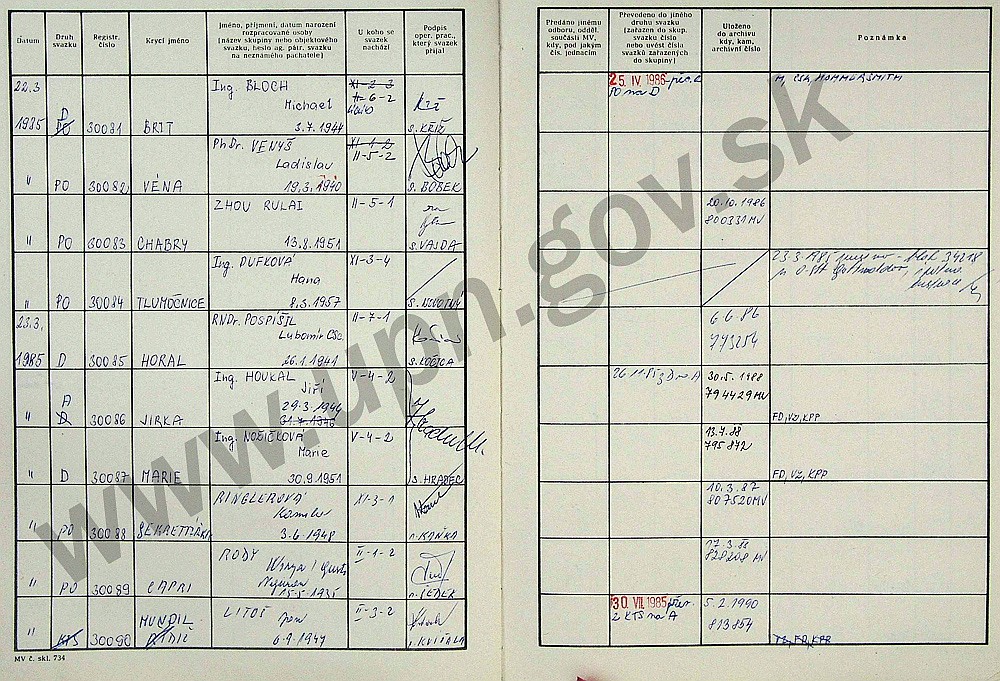 Datum
Druh svazku
Registr. číslo
Krycí jméno
Jméno, příjmení, datum narození
rozpracované osoby
(název skupiny nebo objektového
svazku, heslo ag. pátr. svazku
na neznámého pachatele)
U koho se
svazek
nachází
Podpis
oper. prac.,
který svazek
přijal
Předáno jinému
odboru, odděl.
součásti MV,
kdy, pod jakým
čís. jednacím
Převedeno do jiného
druhu svazku
(zařazen do skup.
svazku číslo
nebo uvést čísla
svazků zařazených
do skupiny)
Uloženo
do archivu
kdy, kam,
archivní číslo
Poznámka
22.3
1985 D PO 30081 BRIT
Ing. BLOCH
Michael
3.7.1944
XI-2-3
II-6-2
s. KŘÍŽ
25. IV. 1986
PO na D
M, ČSR, HOMMERSMITH
" PO 30082 VÉNA
PhDr. VENYŠ
Ladislav
19.3.1940
XI-1-2
II-5-2
s. BOBEK
" PO 30083 CHABRY
ZHOU RULAI
13.8.1951
II-5-1
s. VAJDA
20.10.1986
800331 MV
" PO 30084 TLUMOČNICE
Ing. DUFKOVÁ
Hana
8.3.1957
XI-3-4
s. NOVOTNÝ
23.3.
1985 D 30085 HORAL
RNDr. POSPÍŠIL
Lubomír CSc.
26.1.1941
II-7-1
s. KOČICA
6.6.86
773254
" A D 30086 JIRKA
Ing. HOUKAL
Jiří
29.3.1946
31.7.1946
V-4-2
26.11.85 z D na A
30.5.1988
794429 MV
FD, VZ, KPP
" D 30087 MARIE
Ing. NOŽIČKOVÁ
Marie
30.9.1951
V-4-2
s. HRADEC
13.7.88
795872
FD, VZ, KPP
" PO 30088 SEKRETÁŘKA
RINGLEROVÁ
Kamila
3.6.1948
XI-3-1
s. KAŇKA
10.3.87
807520 MV
" PO 30089 CAPRI
RODY
15.5.1935
II-1-2
17.3.88
828208 MV
" KTS 30090 MUNDIL
LITOŠ
Jan
6.9.1947
II-3-2
s. KVIŠALA
30. VII. 1985
z KTS na A
5.2.1990
813854
TS, FD, KPP
MV č. skl. 734
www.upn.gov.sk